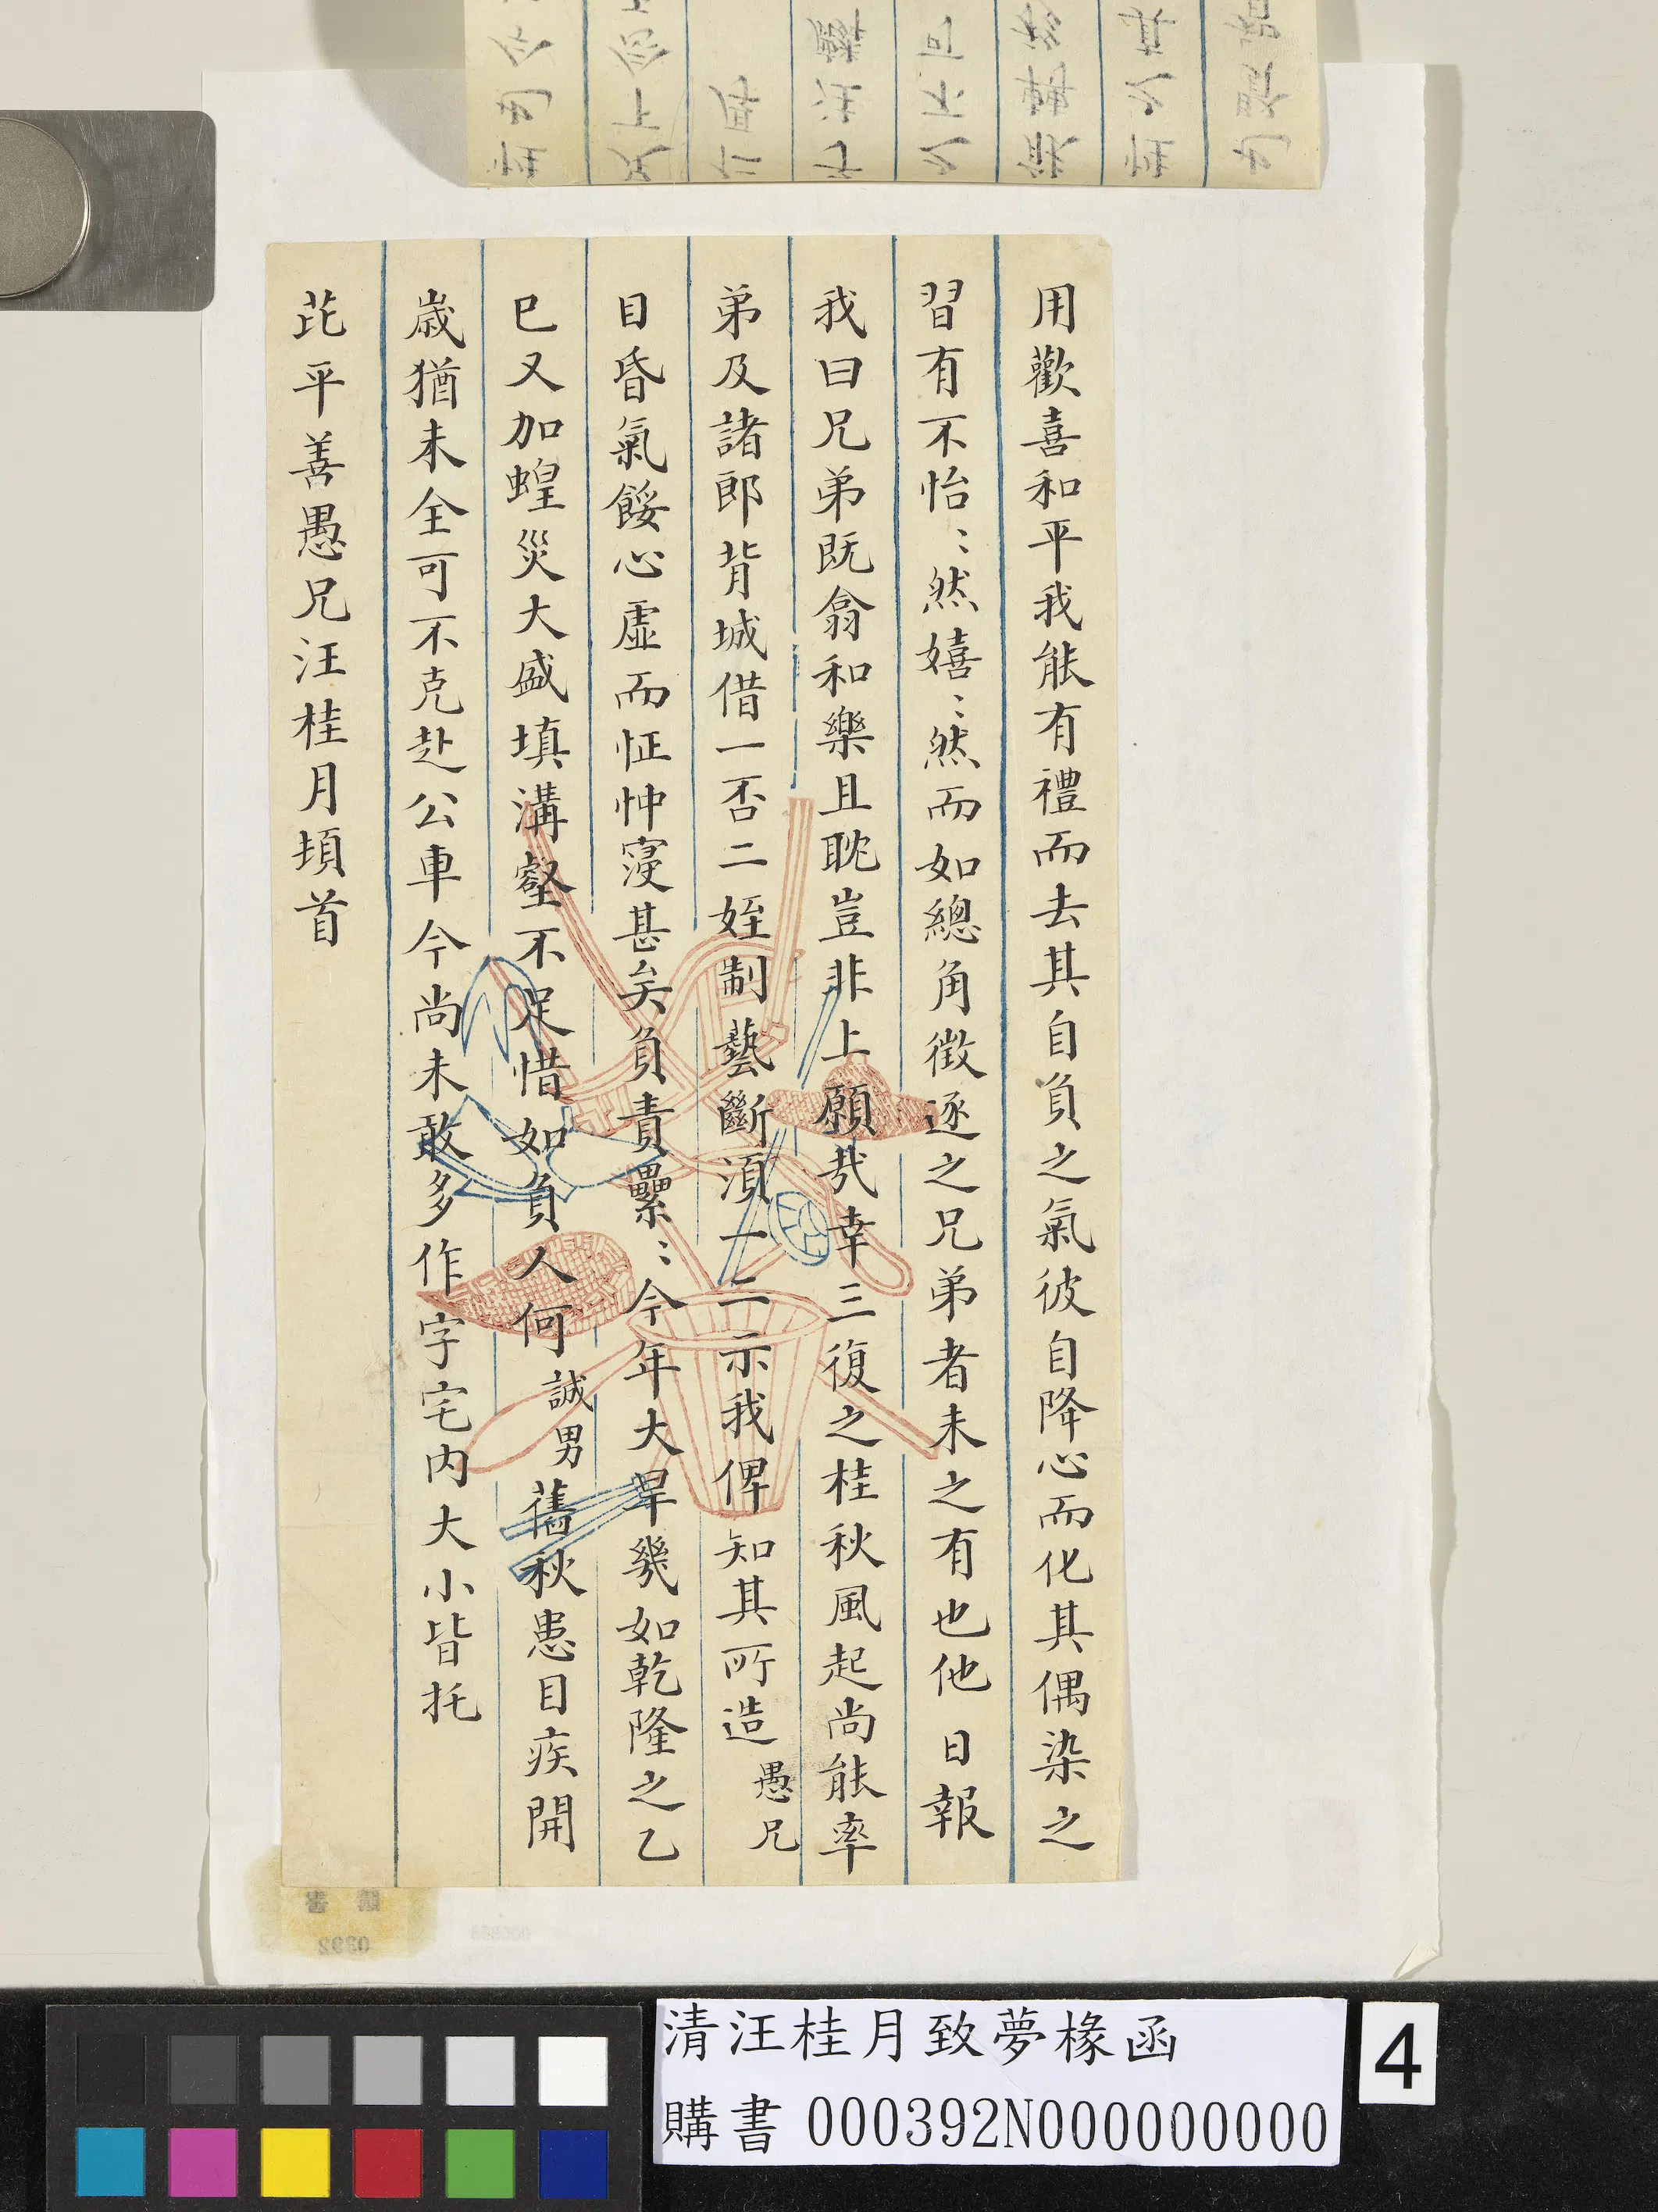 用歡喜和平我能有禮而去其自負之氣彼自降心而化其偶染之
習有不怡〻然嬉〻然而如總角徵逐之兄弟者未之有也他日報
我曰兄弟既翕和樂且耽豈非上願哉幸三復之桂秋風起尚能率
弟及諸郎背城借一否二姪制藝斷須一二示我俾知其所造愚兄
目昏氣餒心虛而怔忡寖甚矣負責纍〻今年大旱幾如乾隆之乙
巳又加蝗災大盛填溝壑不足惜如負人何誠男舊秋患目疾開
歲猶未全可不克赴公車今尚未敢多作字宅内大小皆托
芘平善愚兄汪桂月頓首
清汪桂月致夢椽函
購書 000392N000000000
4